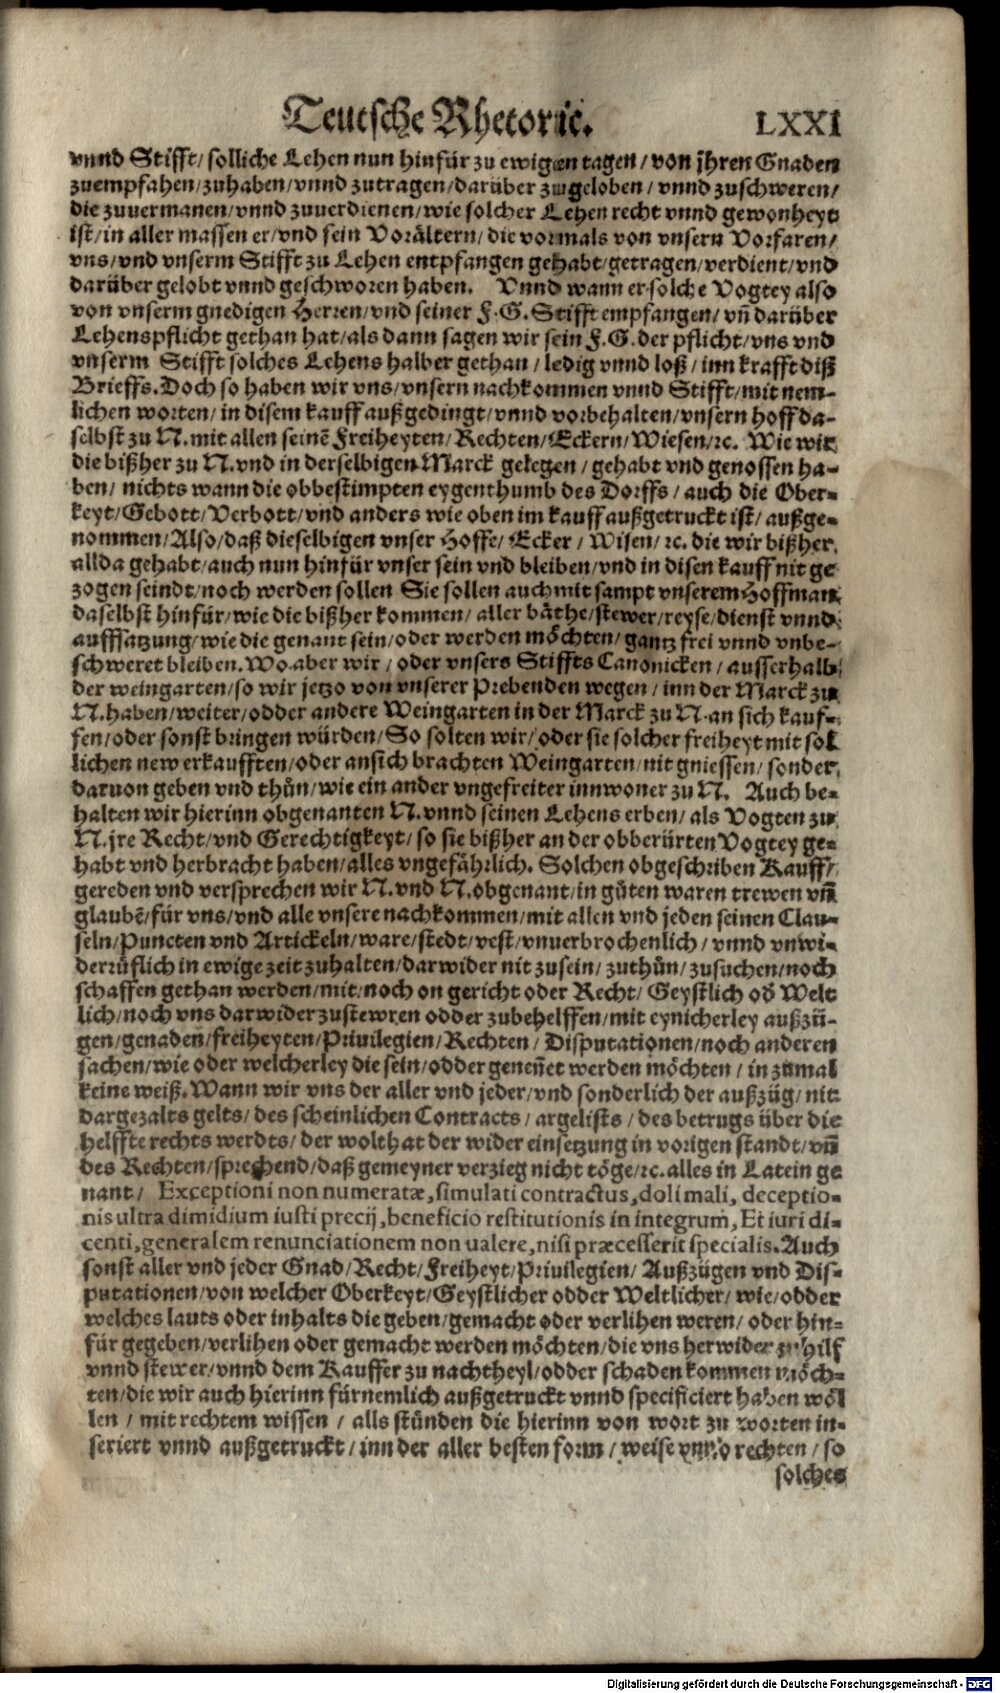 Teutsche Rhetoric. LXXI
vnnd Stifft/ solliche Lehen nun hinfür zu ewigen tagen/ von jhren Gnaden
zuempfahen/zuhaben/vnnd zutragen/darüber zugeloben/ vnnd zuschweren/
die zuuermanen/vnnd zuuerdienen/wie solcher Lehen recht vnnd gewonheyt
ist/in aller massen er/vnd sein Vorältern/die vormals von vnsern Vorfaren/
vns/vnd vnserm Stifft zu Lehen entpfangen gehabt/getragen/verdient/vnd
darüber gelobt vnnd geschworen haben. Vnnd wann er solche Vogtey also
von vnserm gnedigen Herren/vnd seiner F.G. Stifft empfangen/vñ darüber
Lehenspflicht gethan hat/als dann sagen wir sein F.G. der pflicht/vns vnd
vnserm Stifft solches Lehens halber gethan/ ledig vnnd loß/ inn krafft diß
Brieffs. Doch so haben wir vns/vnsern nachkommen vnnd Stifft/mit nem-
lichen worten/in disem kauff außgedingt/vnnd vorbehalten/vnsern hoff da-
selbst zu N. mit allen seinẽ Freiheyten/Rechten/Eckern/Wiesen/ꝛc. Wie wir
die bißher zu N. vnd in derselbigen Marck gelegen/ gehabt vnd genossen ha-
ben/ nichts wann die obbestimpten eygenthumb des Dorffs/ auch die Ober-
keyt/Gebott/Verbott/vnd anders wie oben im kauff außgetruckt ist/außge-
nommen/Also/daß dieselbigen vnser Hoffe/Ecker/ Wisen/ꝛc. die wir bißher
allda gehabt/auch nun hinfür vnser sein vnd bleiben/vnd in disen kauff nit ge
zogen seindt/noch werden sollen Sie sollen auch mit sampt vnserem Hoffman
daselbst hinfür/wie die bißher kommen/ aller bäthe/stewer/reyse/dienst vnnd
auffsatzung/wie die genant sein/oder werden möchten/ gantz frei vnnd vnbe-
schweret bleiben. Wo aber wir/ oder vnsers Stiffts Canonicken/ ausserhalb
der weingarten/so wir jetzo von vnserer Prebenden wegen/ inn der Marck zu
N. haben/weiter/odder andere Weingarten in der Marck zu N. an sich kauf-
fen/oder sonst bringen würden/So solten wir/oder sie solcher freiheyt mit sol
lichen new erkaufften/oder ansich brachten Weingarten/nit gniessen/ sonder
daruon geben vnd thůn/wie ein ander vngefreiter innwoner zu N. Auch be-
halten wir hierinn obgenanten N. vnnd seinen Lehens erben/als Vogten zu
N. jre Recht/vnd Gerechtigkeyt/so sie bißher an der obberürten Vogtey ge-
habt vnd herbracht haben/alles vngefährlich. Solchen obgeschriben Kauff/
gereden vnd versprechen wir N. vnd N. obgenant/in gůten waren trewen vñ
glaubẽ/für vns/vnd alle vnsere nachkommen/mit allen vnd jeden seinen Clau-
seln/Puncten vnd Artickeln/ware/stedt/vest/vnuerbrochenlich/ vnnd vnwi-
derrüflich in ewige zeit zuhalten/darwider nit zusein/zuthůn/zusuchen/noch
schaffen gethan werden/mit/noch on gericht oder Recht/Geystlich oď Welt
lich/noch vns darwider zustewren odder zubehelffen/mit eynicherley außzü-
gen/genaden/freiheyten/Priuilegien/Rechten/ Disputationen/noch anderen
sachen/wie oder welcherley die sein/odder geneñet werden möchten/in zůmal
keine weiß. Wann wir vns der aller vnd jeder/vnd sonderlich der außzüg/nit
dargezalts gelts/des scheinlichen Contracts/argelists/des betrugs über die
helffte rechts werdts/der wolthat der wider einsetzung in vorigen standt/vñ
des Rechten/sprechend/daß gemeyner verzieg nicht töge/ꝛc. alles in Latein ge
nant/ Exceptioni non numeratæ, simulati contractus, doli mali, deceptio-
nis ultra dimidium iusti precij, beneficio restitutionis in integrum, Et iuri di-
centi, generalem renunciationem non ualere, nisi præcesserit specialis. Auch
sonst aller vnd jeder Gnad/Recht/Freiheyt/Priuilegien/Außzügen vnd Dis-
putationen/von welcher Oberkeyt/Geystlicher odder Weltlicher/wie/odder
welches lauts oder inhalts die geben/gemacht oder verlihen weren/oder hin-
für gegeben/verlihen oder gemacht werden möchten/die vns herwider zuhilf
vnnd stewer/vnnd dem Kauffer zu nachtheyl/odder schaden kommen möch-
ten/die wir auch hierinn fürnemlich außgetruckt vnnd specificiert haben wöl
len/ mit rechtem wissen/ alls stünden die hierinn von wort zu worten in-
seriert vnnd außgetruckt/inn der aller besten form/ weise vnnd rechten/ so
solches
Digitalisierung gefördert durch die Deutsche Forschungsgemeinschaft - DFG